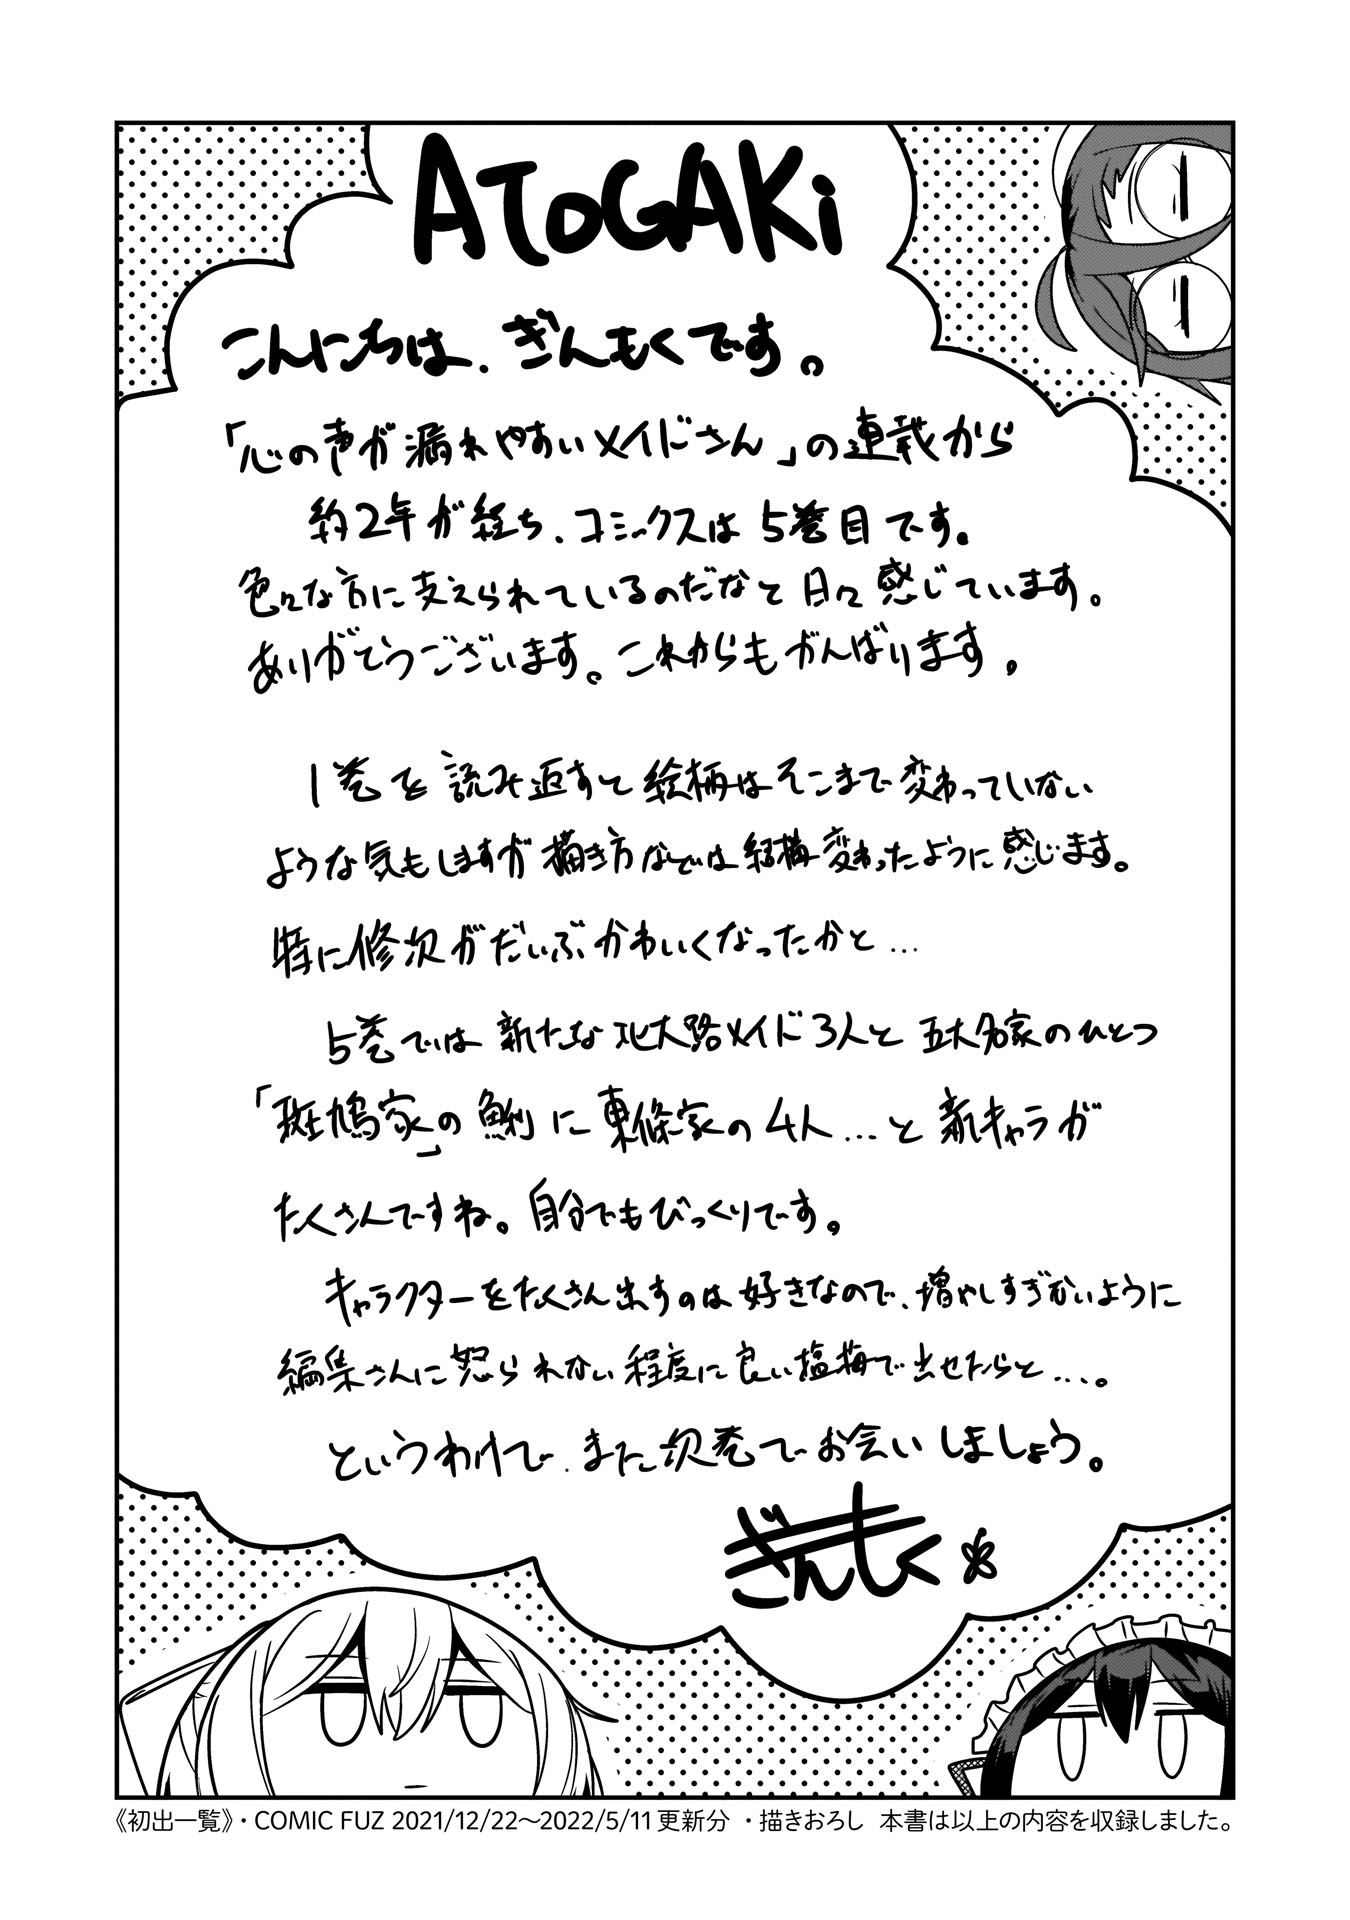 ATOGAKi
こんにちは、ぎんもくです。
「心の声が漏れやすいメイドさん」の連載から
約2年が経ち、コミックスは5巻目です。
色々な方に支えられているのだなと日々感じています。
ありがとうございます。これからもがんばります。
1巻を読み返すと絵柄はそこまで変わっていない
ような気もしますが描き方などは結構変わったように感じます。
特に修次がだいぶかわいくなったかと…
5巻では新たな北大路メイド3人と五大名家のひとつ
「斑鳩家」の鯏に東條家の4人…と新キャラが
たくさんですね。自分でもびっくりです。
キャラクターをたくさん出すのは好きなので、増やしすぎないように
編集さんに怒られない程度に良い塩梅で出せたらと…。
というわけで、また次巻でお会いしましょう。
ぎんもく
《初出一覧》・COMIC FUZ 2021/12/22～2022/5/11更新分 ・描きおろし 本書は以上の内容を収録しました。